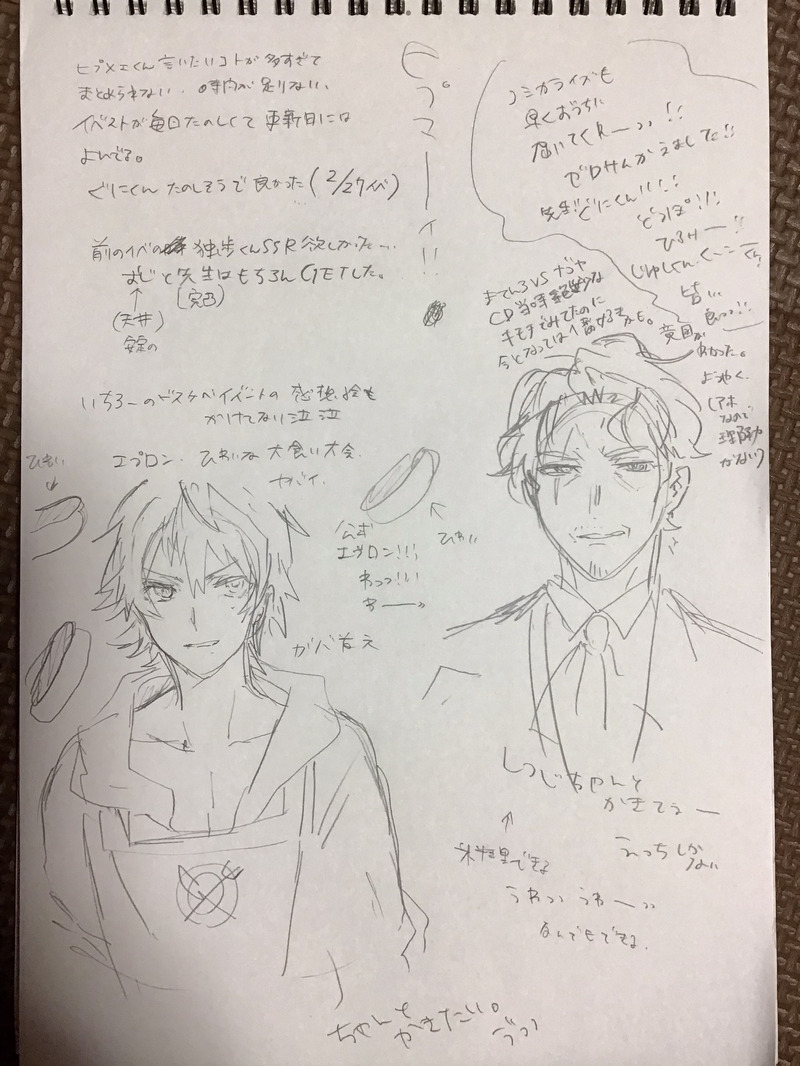 ヒプマイくん言いたいコトが多すぎて
まとめられない、時間が足りない、
イベストが毎日たのしくて更新日には
よんでる。
ぐりにくん たのしそうで良かった(2/27イベ)
前のイベの 独歩くんSSR欲しかった…
おじと先生はもちろんGETした。
↑
(天井)
(完凸)
いちろーの イベントの感想絵も
かけてない泣泣
エプロン、ひわいな大食い大会、
ヤバイ、
ひわい
ヒプマーイ!!
コミカライズも
早くおうちに
届いてくれーっ!!
ゼロサムかえました!!
先生!ぐりにくん!!!!
どっぽ!!
ひふみー!!
じゅしくんくーこーくん!
まてんろVSナゴヤ
CD当時 な
キモチでみてたのに
今となっては1番好きかも。
皆…
良っっ!!
意図が
わかった。
ようやく、
(アホ
なので
理解力
がない)
公式
エプロン!!!
わっっ!!!
わーーっ
ひわい
ガバ首元
しつじちゃんと
かきてぇー
↑
料理できる
えっちしか
ない
うわっっ うわーっっ
なんでもできる、
ちゃんと
かきたい。